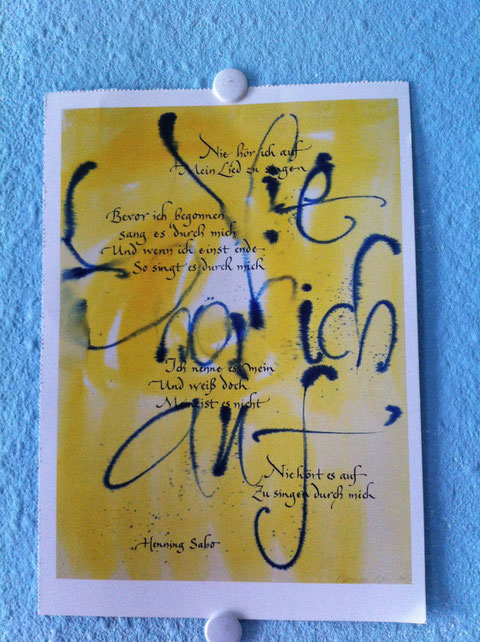 Nie hör ich auf
Mein Lied zu singen
Bevor ich begonnen
sang es durch mich
Und wenn ich einst ende
So singt es durch mich
Nie
hör ich
auf
Ich nenne es mein
Und weiß doch
Mein ist es nicht
Nie hört es auf
Zu singen durch mich
Henning Sabo